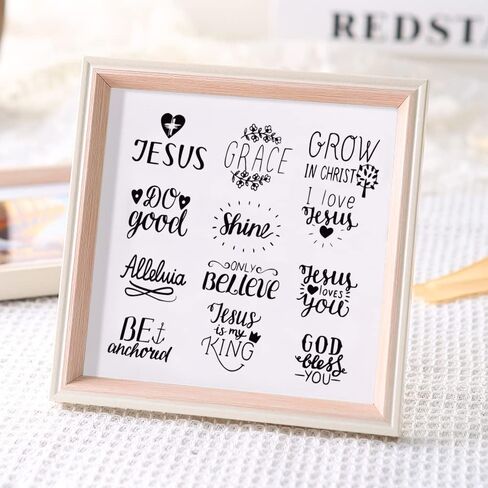 REDSTA
JESUS
GRACE
GROW
IN CHRIST
Do
good
Shine
I love
Jesus
Alleluia
ONLY
BELIEVE
Jesus
LOVES
you
BE
anchored
Jesus
is my
KING
GOD
bless
YOU